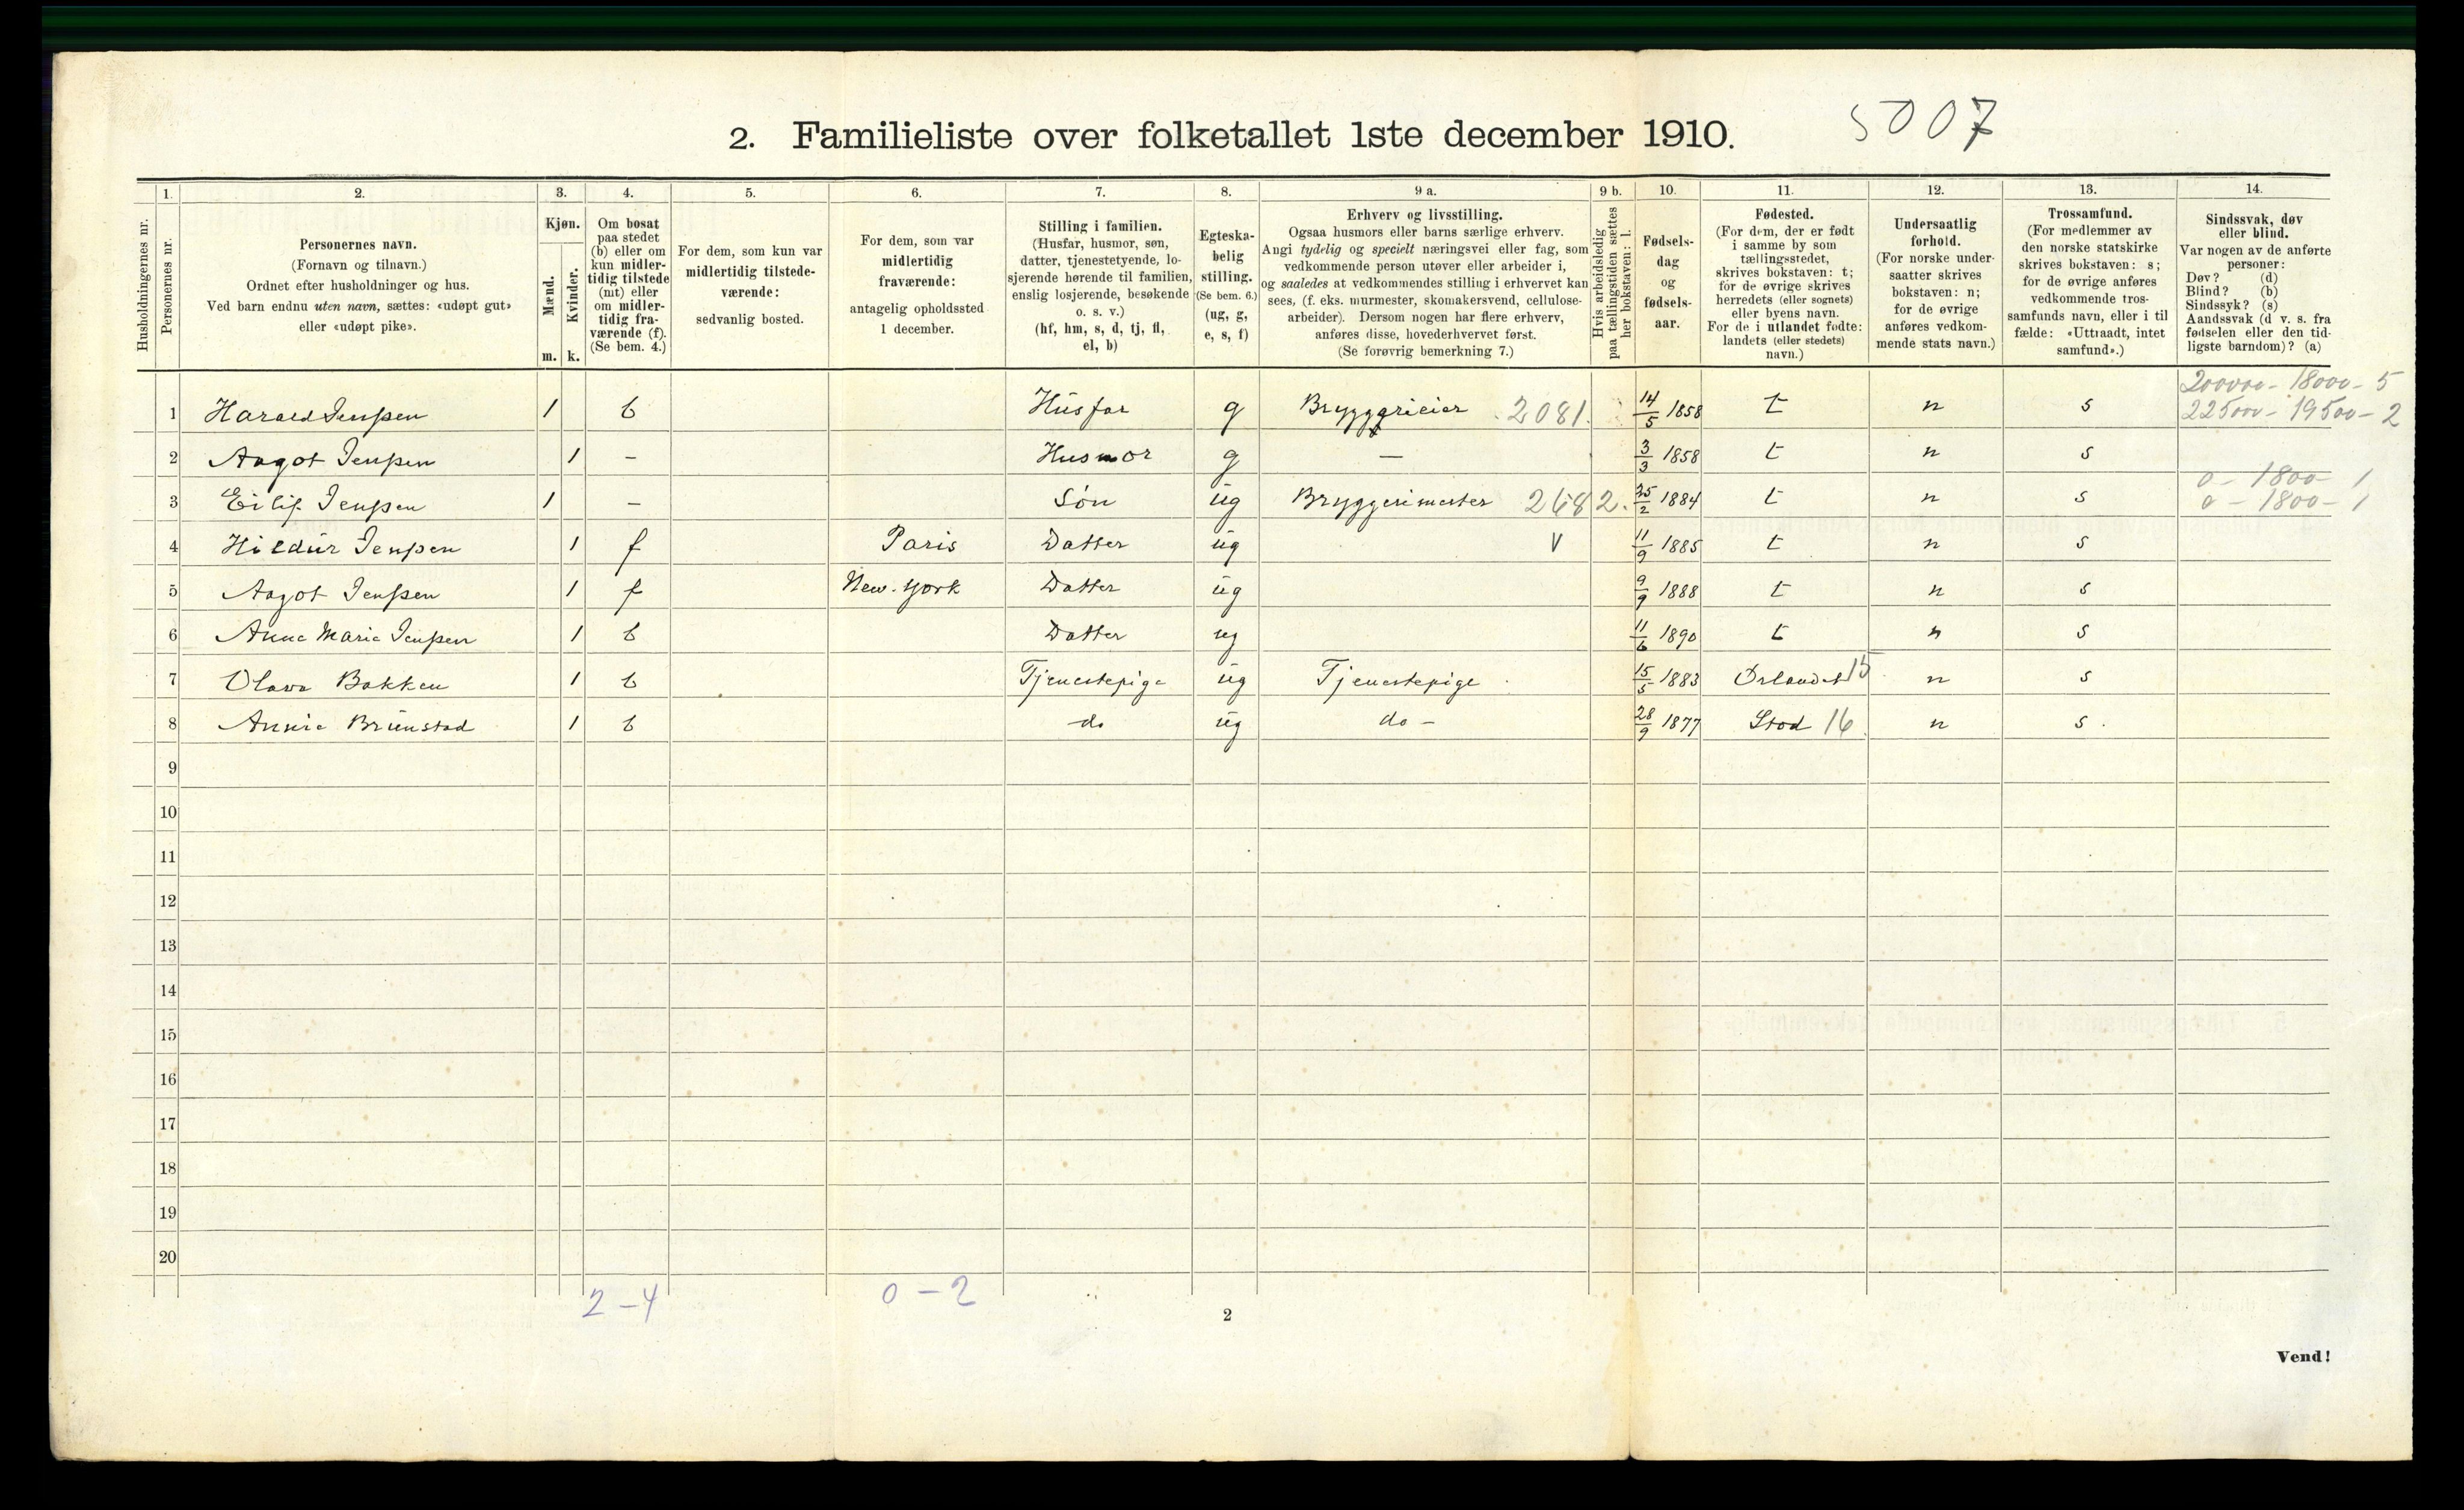 2. Familieliste over folketallet 1ste december 1910.
5007
1. 2. 3. 4. 5. 6. 7. 8. 9 a. 9 b. 10. 11. 12. 13. 14.
Husholdningernes nr.
Personernes nr.
Personernes navn.
(Fornavn og tilnavn.)
Ordnet efter husholdninger og hus.
Ved barn endnu uten navn, sættes: «udøpt gut»
eller «udøpt pike».
Kjøn.
Mænd.
Kvinder.
m. k.
Om bosat
paa stedet
(b) eller om
kun midler-
tidig tilstede
(mt) eller
om midler-
tidig fra-
værende (f).
(Se bem. 4.)
For dem, som kun var
midlertidig tilstede-
værende:
sedvanlig bosted.
For dem, som var
midlertidig
fraværende:
antagelig opholdssted
1 december.
Stilling i familien.
(Husfar, husmor, søn,
datter, tjenestetyende, lo-
sjerende hørende til familien,
enslig losjerende, besøkende
o. s. v.)
(hf, hm, s, d, tj, fl,
el, b)
Egteska-
belig
stilling.
(Se bem. 6.)
(ug, g,
e, s, f)
Erhverv og livsstilling.
Ogsaa husmors eller barns særlige erhverv.
Angi tydelig og specielt næringsvei eller fag, som
vedkommende person utøver eller arbeider i,
og saaledes at vedkommendes stilling i erhvervet kan
sees, (f. eks. murmester, skomakersvend, cellulose-
arbeider). Dersom nogen har flere erhverv,
anføres disse, hovederhvervet først.
(Se forøvrig bemerkning 7.)
Hvis arbeidsledig
paa tællingstiden sættes
her bokstaven: l.
Fødsels-
dag
og
fødsels-
aar.
Fødested.
(For dem, der er født
i samme by som
tællingsstedet,
skrives bokstaven: t;
for de øvrige skrives
herredets (eller sognets)
eller byens navn.
For de i utlandet fødte:
landets (eller stedets)
navn.)
Undersaatlig
forhold.
(For norske under-
saatter skrives
bokstaven: n;
for de øvrige
anføres vedkom-
mende stats navn.)
Trossamfund.
(For medlemmer av
den norske statskirke
skrives bokstaven: s;
for de øvrige anføres
vedkommende tros-
samfunds navn, eller i til
fælde: «Uttraadt, intet
samfund».)
Sindssvak, døv
eller blind.
Var nogen av de anførte
personer:
Døv? (d)
Blind? (b)
Sindssyk? (s)
Aandssvak (d. v. s. fra
fødselen eller den tid-
ligste barndom)? (a)
200000 - 18000 - 5
1 Harald Jenssen 1 b Husfar g Bryggerieier 2081. 14/5 1858 t n s 225000 - 19500 - 2
2 Aagot Jenssen 1 - Husmor g - 3/3 1858 t n s
0 - 1800 - 1
3 Eilif Jenssen 1 - Søn ug Bryggerimester 2682. 25/2 1884 t n s 0 - 1800 - 1
4 Hildur Jenssen 1 f Paris Datter ug V 11/9 1885 t n s
5 Aagot Jenssen 1 f New-York Datter ug 9/9 1888 t n s
6 Anna Marie Jenssen 1 b Datter ug 11/6 1890 t n s
7 Olava Bakken 1 b Tjenestepige ug Tjenestepige 15/5 1883 Ørlandet 15 n s
8 Annie Brunstad 1 b do ug do - 28/9 1877 Stod 16 n s.
9
10
11
12
13
14
15
16
17
18
19
20
2 - 4 0 - 2
2
Vend!